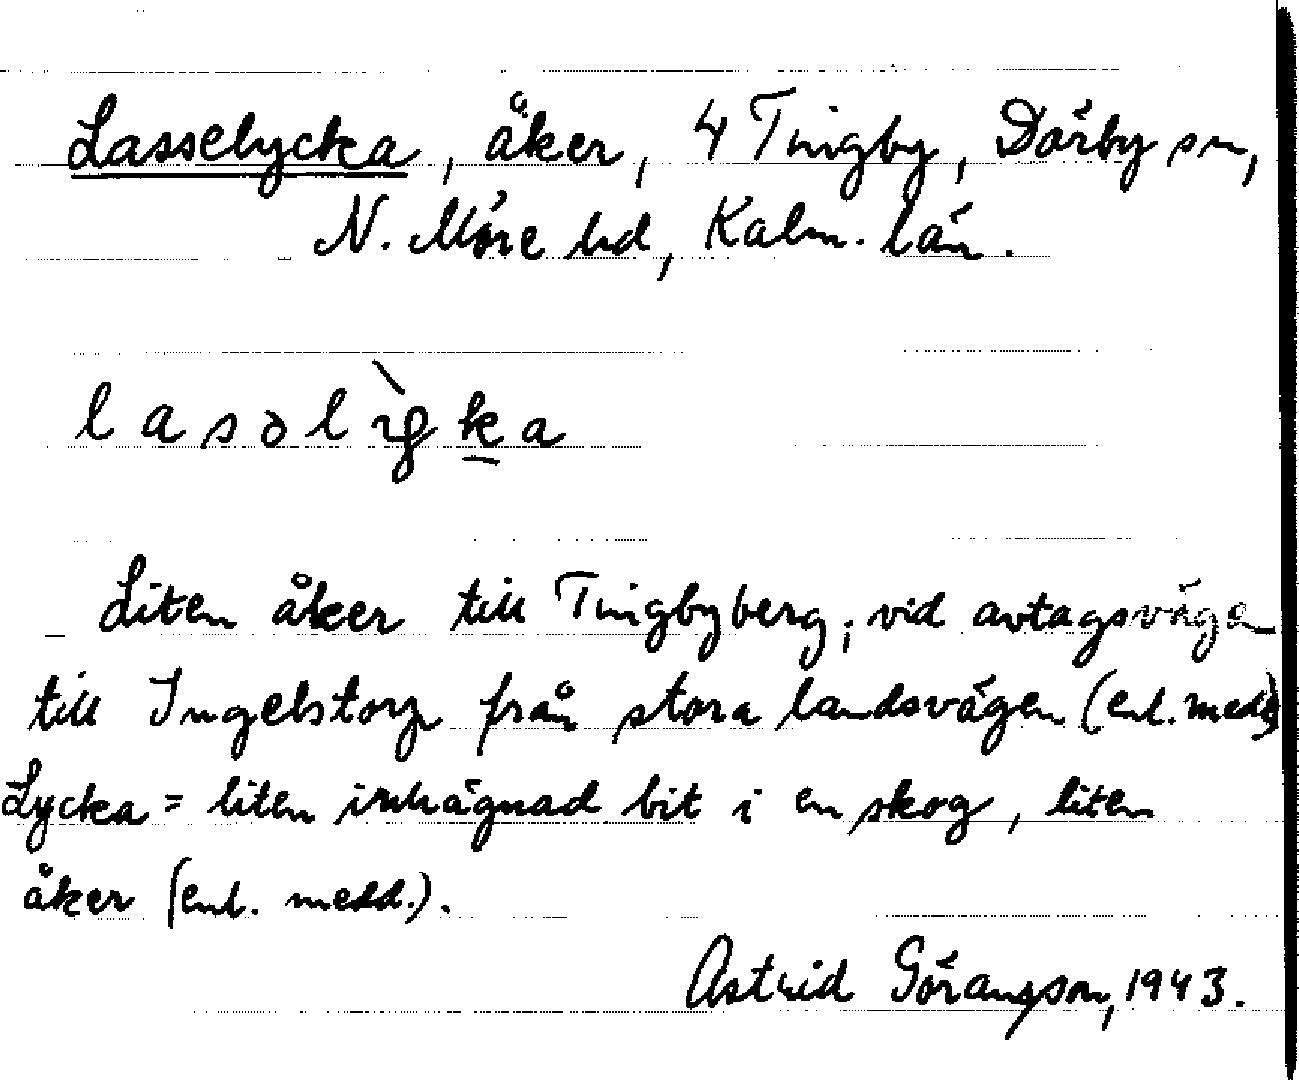 Lasselycka, åker, 4 Tingby, Dörby sn,
N. Möre hd, Kalm. län.
Liten åker till Tingbyberg, vid avtagsvägen
till Ingelstorp från stora landsvägen (enl. medd.)
Lycka = liten inhägnad bit i en skog, liten
åker (enl. medd.).
Astrid Göransson, 1943.